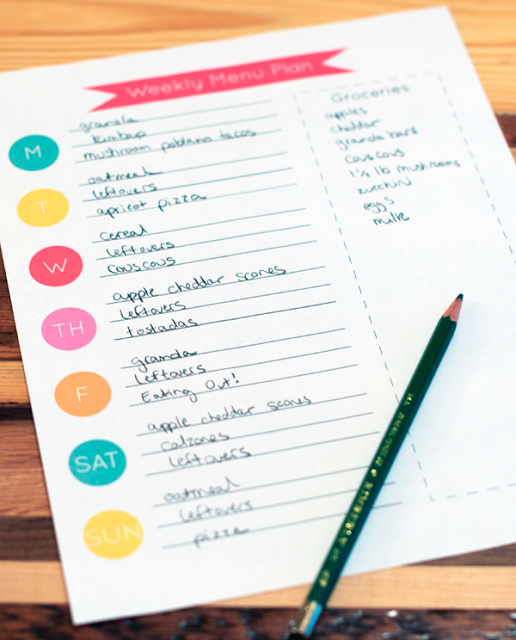 Weekly Menu Plan
M
granola
kimbap
mushroom poblano tacos
T
oatmeal
leftovers
apricot pizza
W
cereal
leftovers
couscous
TH
apple cheddar scones
leftovers
tostadas
F
granola
leftovers
Eating Out!
SAT
apple cheddar scones
calzones
leftovers
SUN
oatmeal
leftovers
pizza
Groceries
apples
cheddar
granola bars
couscous
lb mushrooms
zucchini
eggs
milk